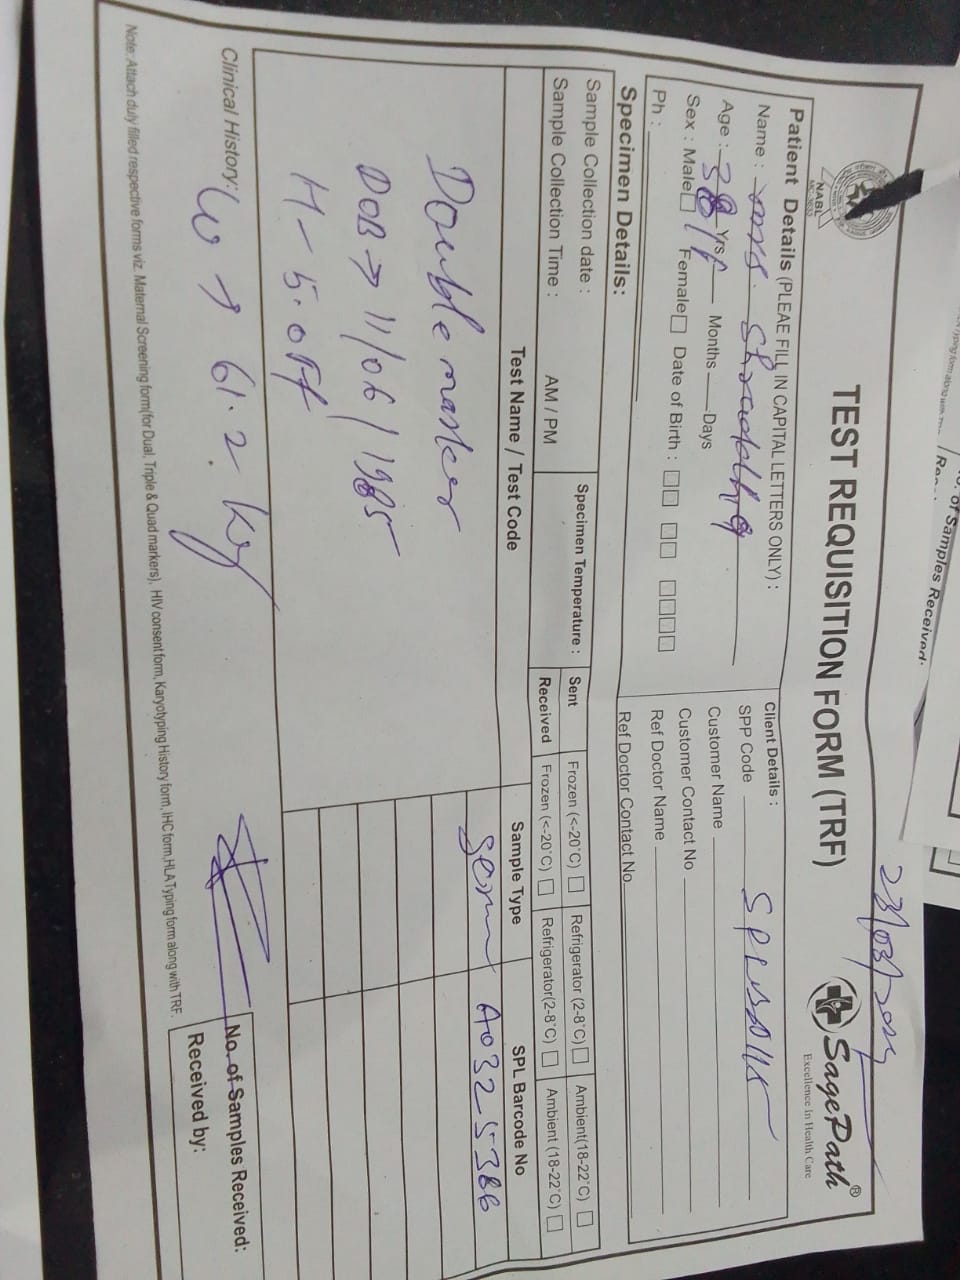 23/03/
SagePath®
Excellence In Health Care
NABL
TEST REQUISITION FORM (TRF)
Patient Details (PLEAE FILL IN CAPITAL LETTERS ONLY) :
Name : Shraddha
Age : 38 Yrs Months Days
Sex : Male Female Date of Birth :
Ph :
Client Details :
SPP Code
Customer Name
Customer Contact No
Ref Doctor Name
Ref Doctor Contact No.
Specimen Details:
Sample Collection date :
Sample Collection Time : AM / PM
Specimen Temperature :
Sent Frozen (<-20°C) Refrigerator (2-8°C) Ambient(18-22°C)
Received Frozen (<-20°C) Refrigerator(2-8°C) Ambient (18-22°C)
Test Name / Test Code Sample Type SPL Barcode No
Double marker Serum A0325386
DOB → 11/06/1985
H - 5.0ft
Clinical History: W → 61.2 kg
No. of Samples Received:
Received by:
Note: Attach duly filled respective forms viz. Maternal Screening form(for Dual, Triple & Quad markers), HIV consent form, Karyotyping History form, IHC form,HLA Typing form along with TRF.
of Samples Received: